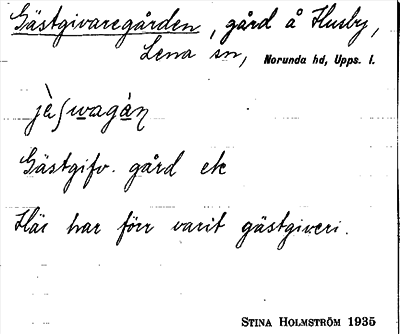 Gästgivaregården, gård å Husby,
Lena sn, Norunda hd, Upps. l.
jὲʃwagàn
Gästgifv. gård etc
Här har förr varit gästgiveri.
STINA HOLMSTRÖM 1935